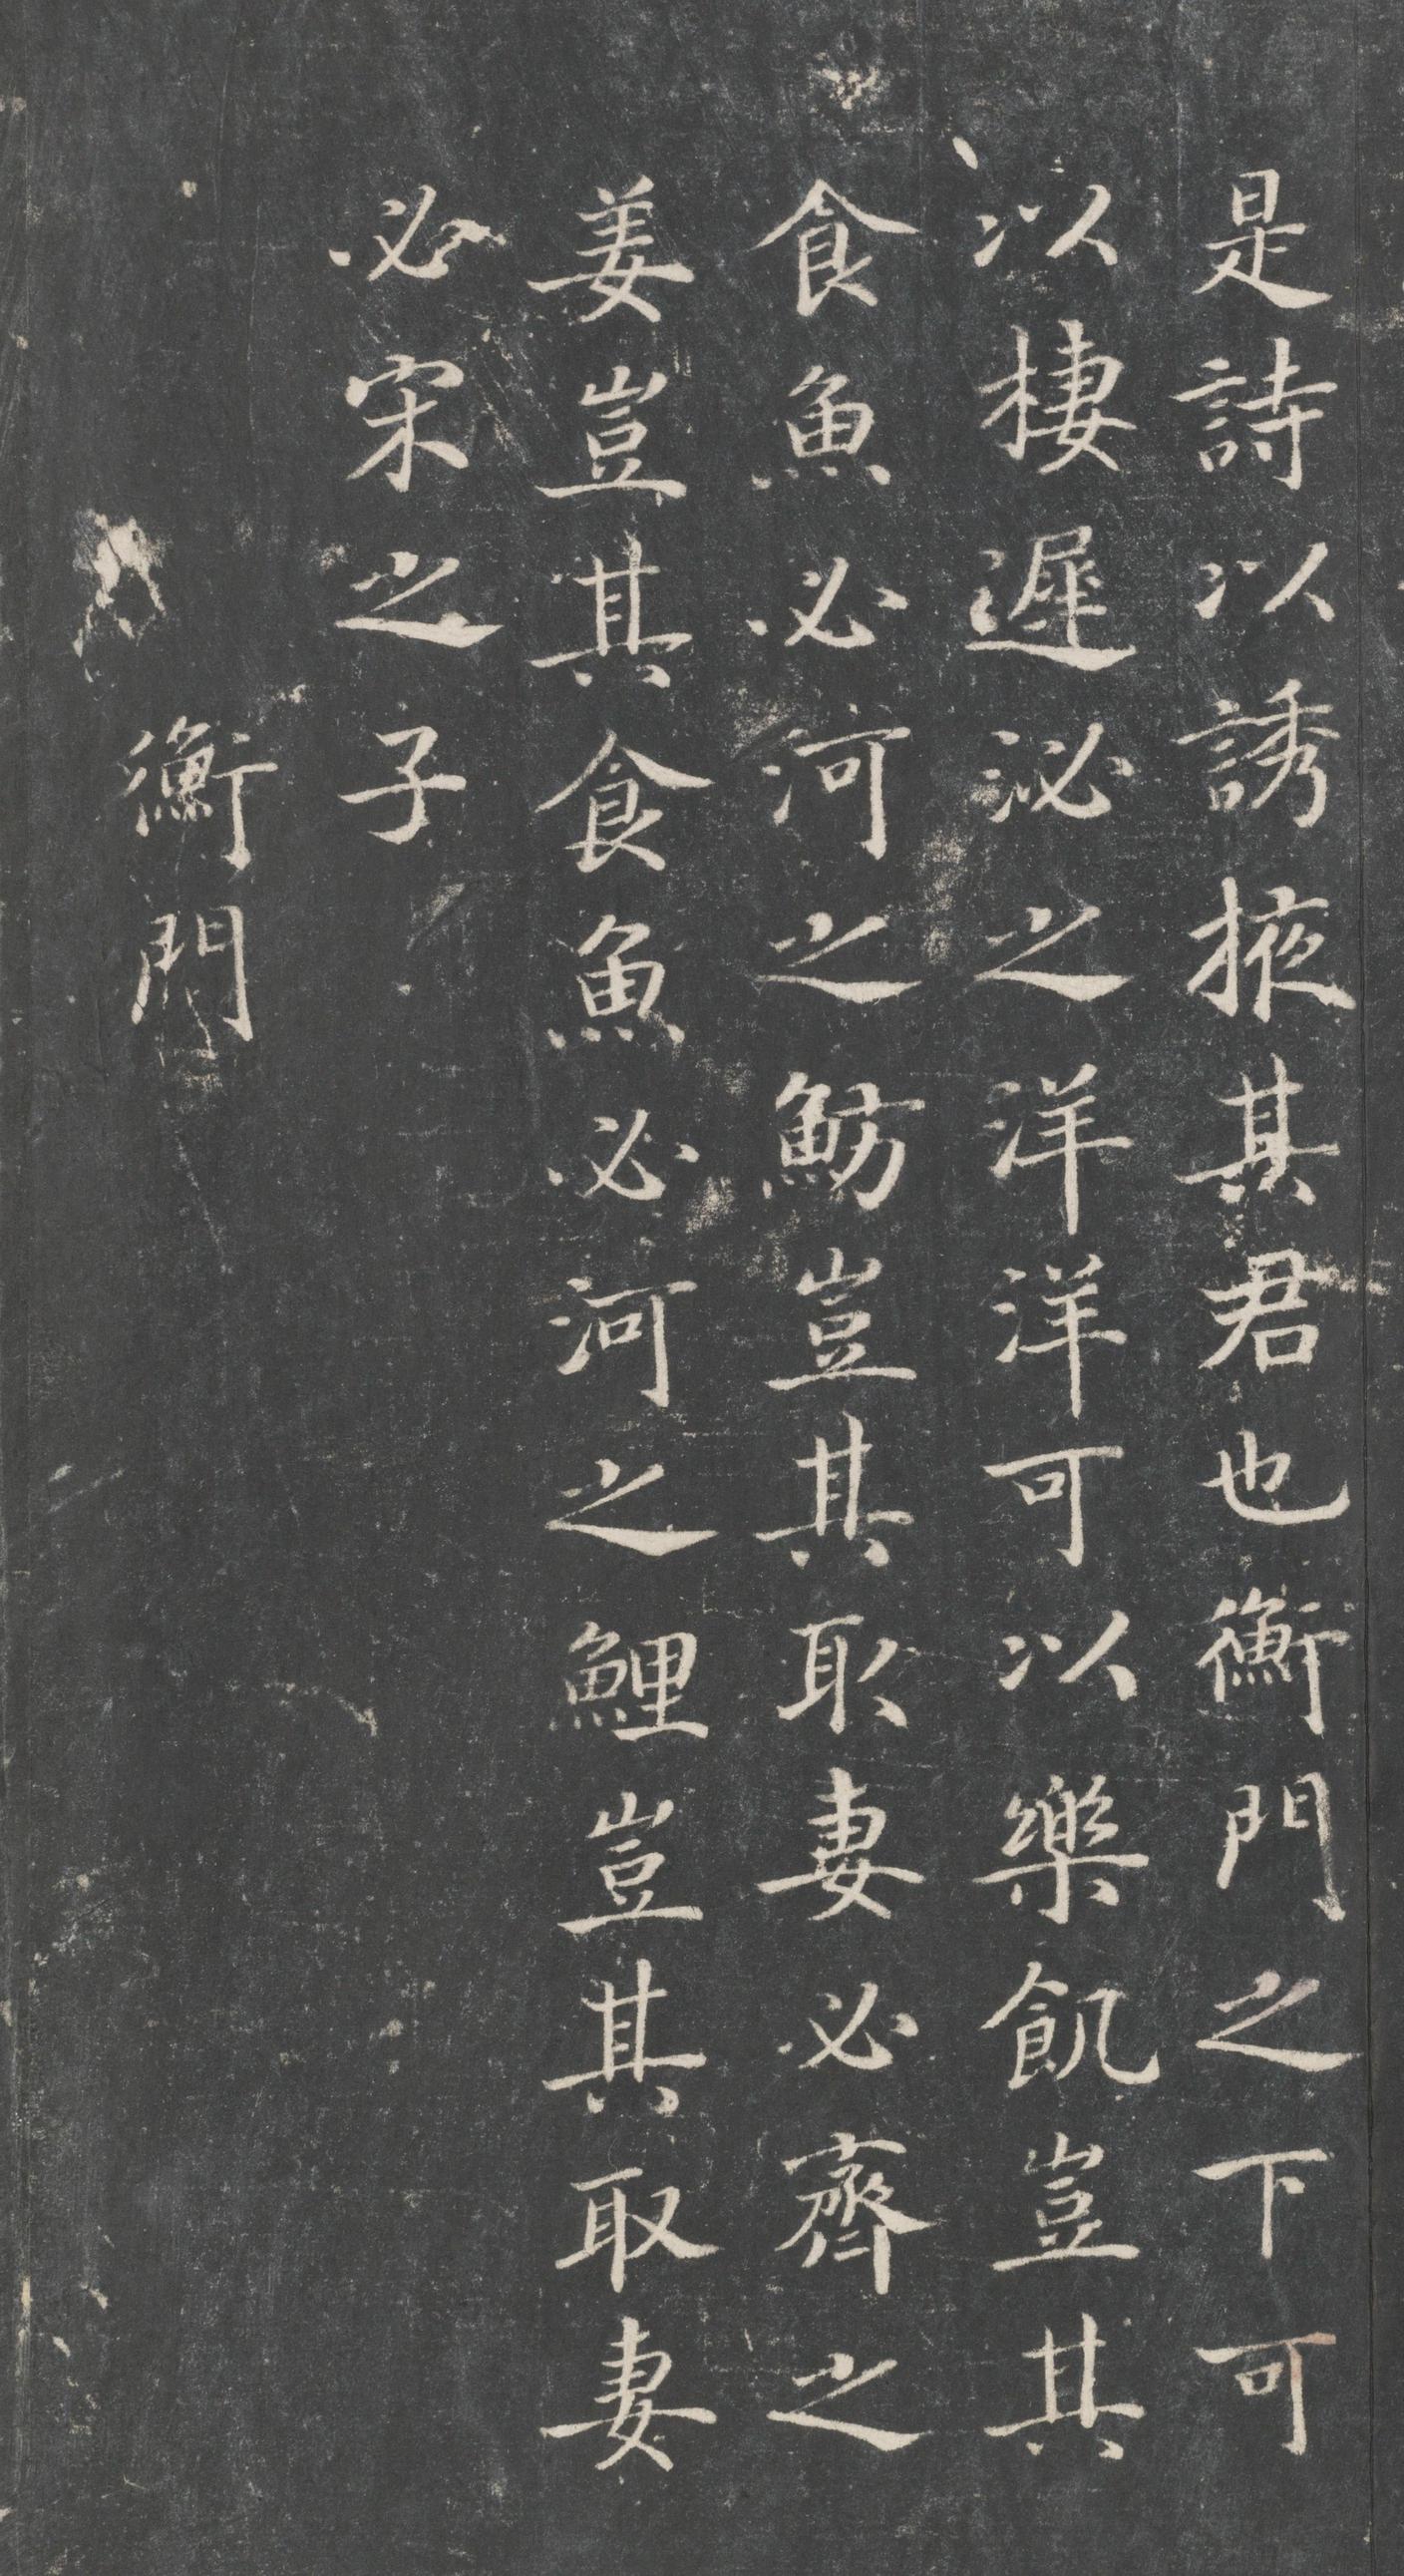 是詩以誘掖其君也衡門之下可
以棲遲泌之洋洋可以樂飢豈其
食魚必河之魴豈其取妻必齊之
姜豈其食魚必河之鯉豈其取妻
必宋之子
衡門